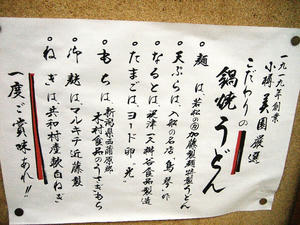 一九一九年創業
小樽 美園 厳選
こだわりの
鍋焼うどん
○麺は、若松の㋕加藤製麺特製うどん
○天ぷらは、入船の名店、鳥琴
○なるとは、天狗谷食品製造
○たまごは、ヨード卵、光
○もちは、新潟県西蒲原郡
木村食品のうさぎもち
○冷麩は、マルキチ近藤製
○ねぎは、共和村産軟白ねぎ
一度ご賞味あれ!!